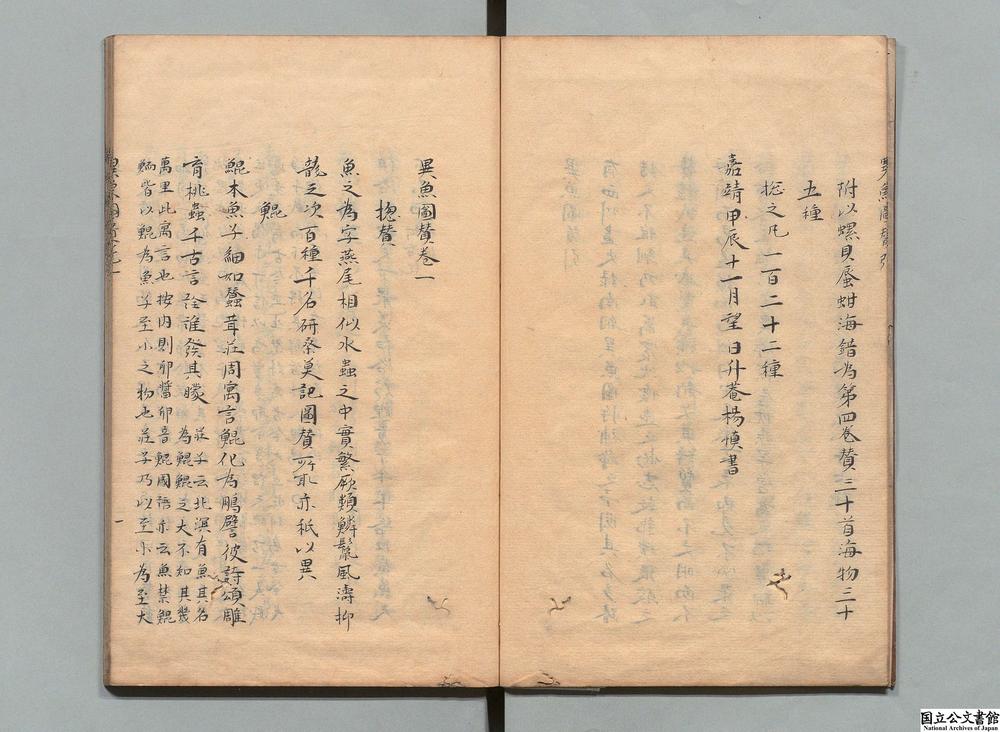 附以螺貝蜃蚶海錯為第四卷贊三十首海物三十
五種
捴之凡一百二十二種
嘉靖甲辰十一月望日升菴楊慎書
異魚圖贊卷一
捴贊
魚之為字燕尾相似水蟲之中實繁厥類鱗鬣風濤抑
龍之次百種千名研桑莫記圖贊所取亦秖以異
鯤
鯤本魚子細如蠶茸莊周寓言鯤化為鵬譬彼詩頌雕
育桃蟲千古言詮誰發其矇
莊子云北溟有魚其名
為鯤鯤之大不知其幾
萬里此寓言也按内則卵醬卵音鯤國語亦云魚禁鯤
鮞皆以鯤為魚子至小之物也莊子乃以至小為至大
一
国立公文書館
National Archives of Japan